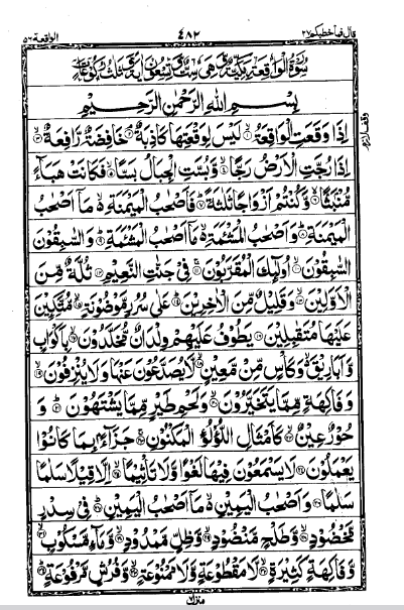 قال فما خطبكم ٢٧ ٤٨٢ الواقعة ٥٦
سورة الواقعة مكية وهي ست وتسعون اية وثلث ركوعات
بِسْمِ اللهِ الرَّحْمٰنِ الرَّحِيْمِ
اِذَا وَقَعَتِ الْوَاقِعَةُ ۙ۝۱ لَيْسَ لِوَقْعَتِهَا كَاذِبَةٌ ۘ۝۲ خَافِضَةٌ رَّافِعَةٌ ۙ۝۳
اِذَا رُجَّتِ الْاَرْضُ رَجًّا ۙ۝۴ وَّبُسَّتِ الْجِبَالُ بَسًّا ۙ۝۵ فَكَانَتْ هَبَآءً
مُّنْۢبَثًّا ۙ۝۶ وَّكُنْتُمْ اَزْوَاجًا ثَلٰثَةً ؕ۝۷ فَاَصْحٰبُ الْمَيْمَنَةِ ۙ مَاۤ اَصْحٰبُ
الْمَيْمَنَةِ ؕ۝۸ وَاَصْحٰبُ الْمَشْـَٔمَةِ ۙ مَاۤ اَصْحٰبُ الْمَشْـَٔمَةِ ؕ۝۹ وَالسّٰبِقُوْنَ
السّٰبِقُوْنَ ۙ۝۱۰ اُولٰٓئِكَ الْمُقَرَّبُوْنَ ۚ۝۱۱ فِيْ جَنّٰتِ النَّعِيْمِ ۝۱۲ ثُلَّةٌ مِّنَ
الْاَوَّلِيْنَ ۙ۝۱۳ وَقَلِيْلٌ مِّنَ الْاٰخِرِيْنَ ؕ۝۱۴ عَلٰى سُرُرٍ مَّوْضُوْنَةٍ ۙ۝۱۵ مُّتَّكِـِٕيْنَ
عَلَيْهَا مُتَقٰبِلِيْنَ ۝۱۶ يَطُوْفُ عَلَيْهِمْ وِلْدَانٌ مُّخَلَّدُوْنَ ۙ۝۱۷ بِاَكْوَابٍ
وَّاَبَارِيْقَ ۙ وَكَاْسٍ مِّنْ مَّعِيْنٍ ۙ۝۱۸ لَّا يُصَدَّعُوْنَ عَنْهَا وَلَا يُنْزِفُوْنَ ۙ۝۱۹
وَفَاكِهَةٍ مِّمَّا يَتَخَيَّرُوْنَ ۙ۝۲۰ وَلَحْمِ طَيْرٍ مِّمَّا يَشْتَهُوْنَ ؕ۝۲۱ وَ
حُوْرٌ عِيْنٌ ۙ۝۲۲ كَاَمْثَالِ اللُّؤْلُؤِ الْمَكْنُوْنِ ۚ۝۲۳ جَزَآءًۢ بِمَا كَانُوْا
يَعْمَلُوْنَ ۝۲۴ لَا يَسْمَعُوْنَ فِيْهَا لَغْوًا وَّلَا تَاْثِيْمًا ۙ۝۲۵ اِلَّا قِيْلًا سَلٰمًا
سَلٰمًا ۝۲۶ وَاَصْحٰبُ الْيَمِيْنِ ۙ مَاۤ اَصْحٰبُ الْيَمِيْنِ ؕ۝۲۷ فِيْ سِدْرٍ
مَّخْضُوْدٍ ۙ۝۲۸ وَّطَلْحٍ مَّنْضُوْدٍ ۙ۝۲۹ وَّظِلٍّ مَّمْدُوْدٍ ۙ۝۳۰ وَّمَآءٍ مَّسْكُوْبٍ ۙ۝۳۱
وَّفَاكِهَةٍ كَثِيْرَةٍ ۙ۝۳۲ لَّا مَقْطُوْعَةٍ وَّلَا مَمْنُوْعَةٍ ۙ۝۳۳ وَّفُرُشٍ مَّرْفُوْعَةٍ ؕ۝۳۴